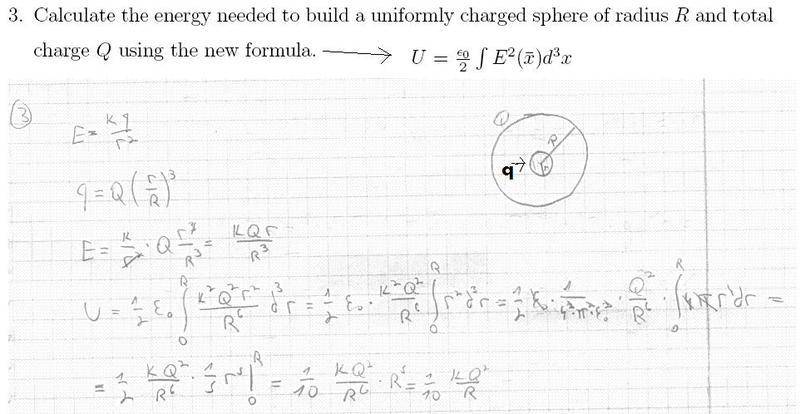 3. Calculate the energy needed to build a uniformly charged sphere of radius R and total
charge Q using the new formula. ⟶ U = ε₀/2 ∫ E²(x̄)d³x
③
E = kq/r²
q = Q(r/R)³
E = k/r² · Q r³/R³ = kQr/R³
U = 1/2 ε₀ ∫₀ᴿ k²Q²r²/R⁶ d³r = 1/2 ε₀ · k²Q²/R⁶ ∫₀ᴿ r²d³r = 1/2 ε₀ · 1/(4²·π²·ε₀²) · Q²/R⁶ · ∫₀ᴿ 4πr⁴dr =
= 1/2 kQ²/R⁶ · 1/5 r⁵|₀ᴿ = 1/10 kQ²/R⁶ · R⁵ = 1/10 kQ²/R
Q
R
q→ r